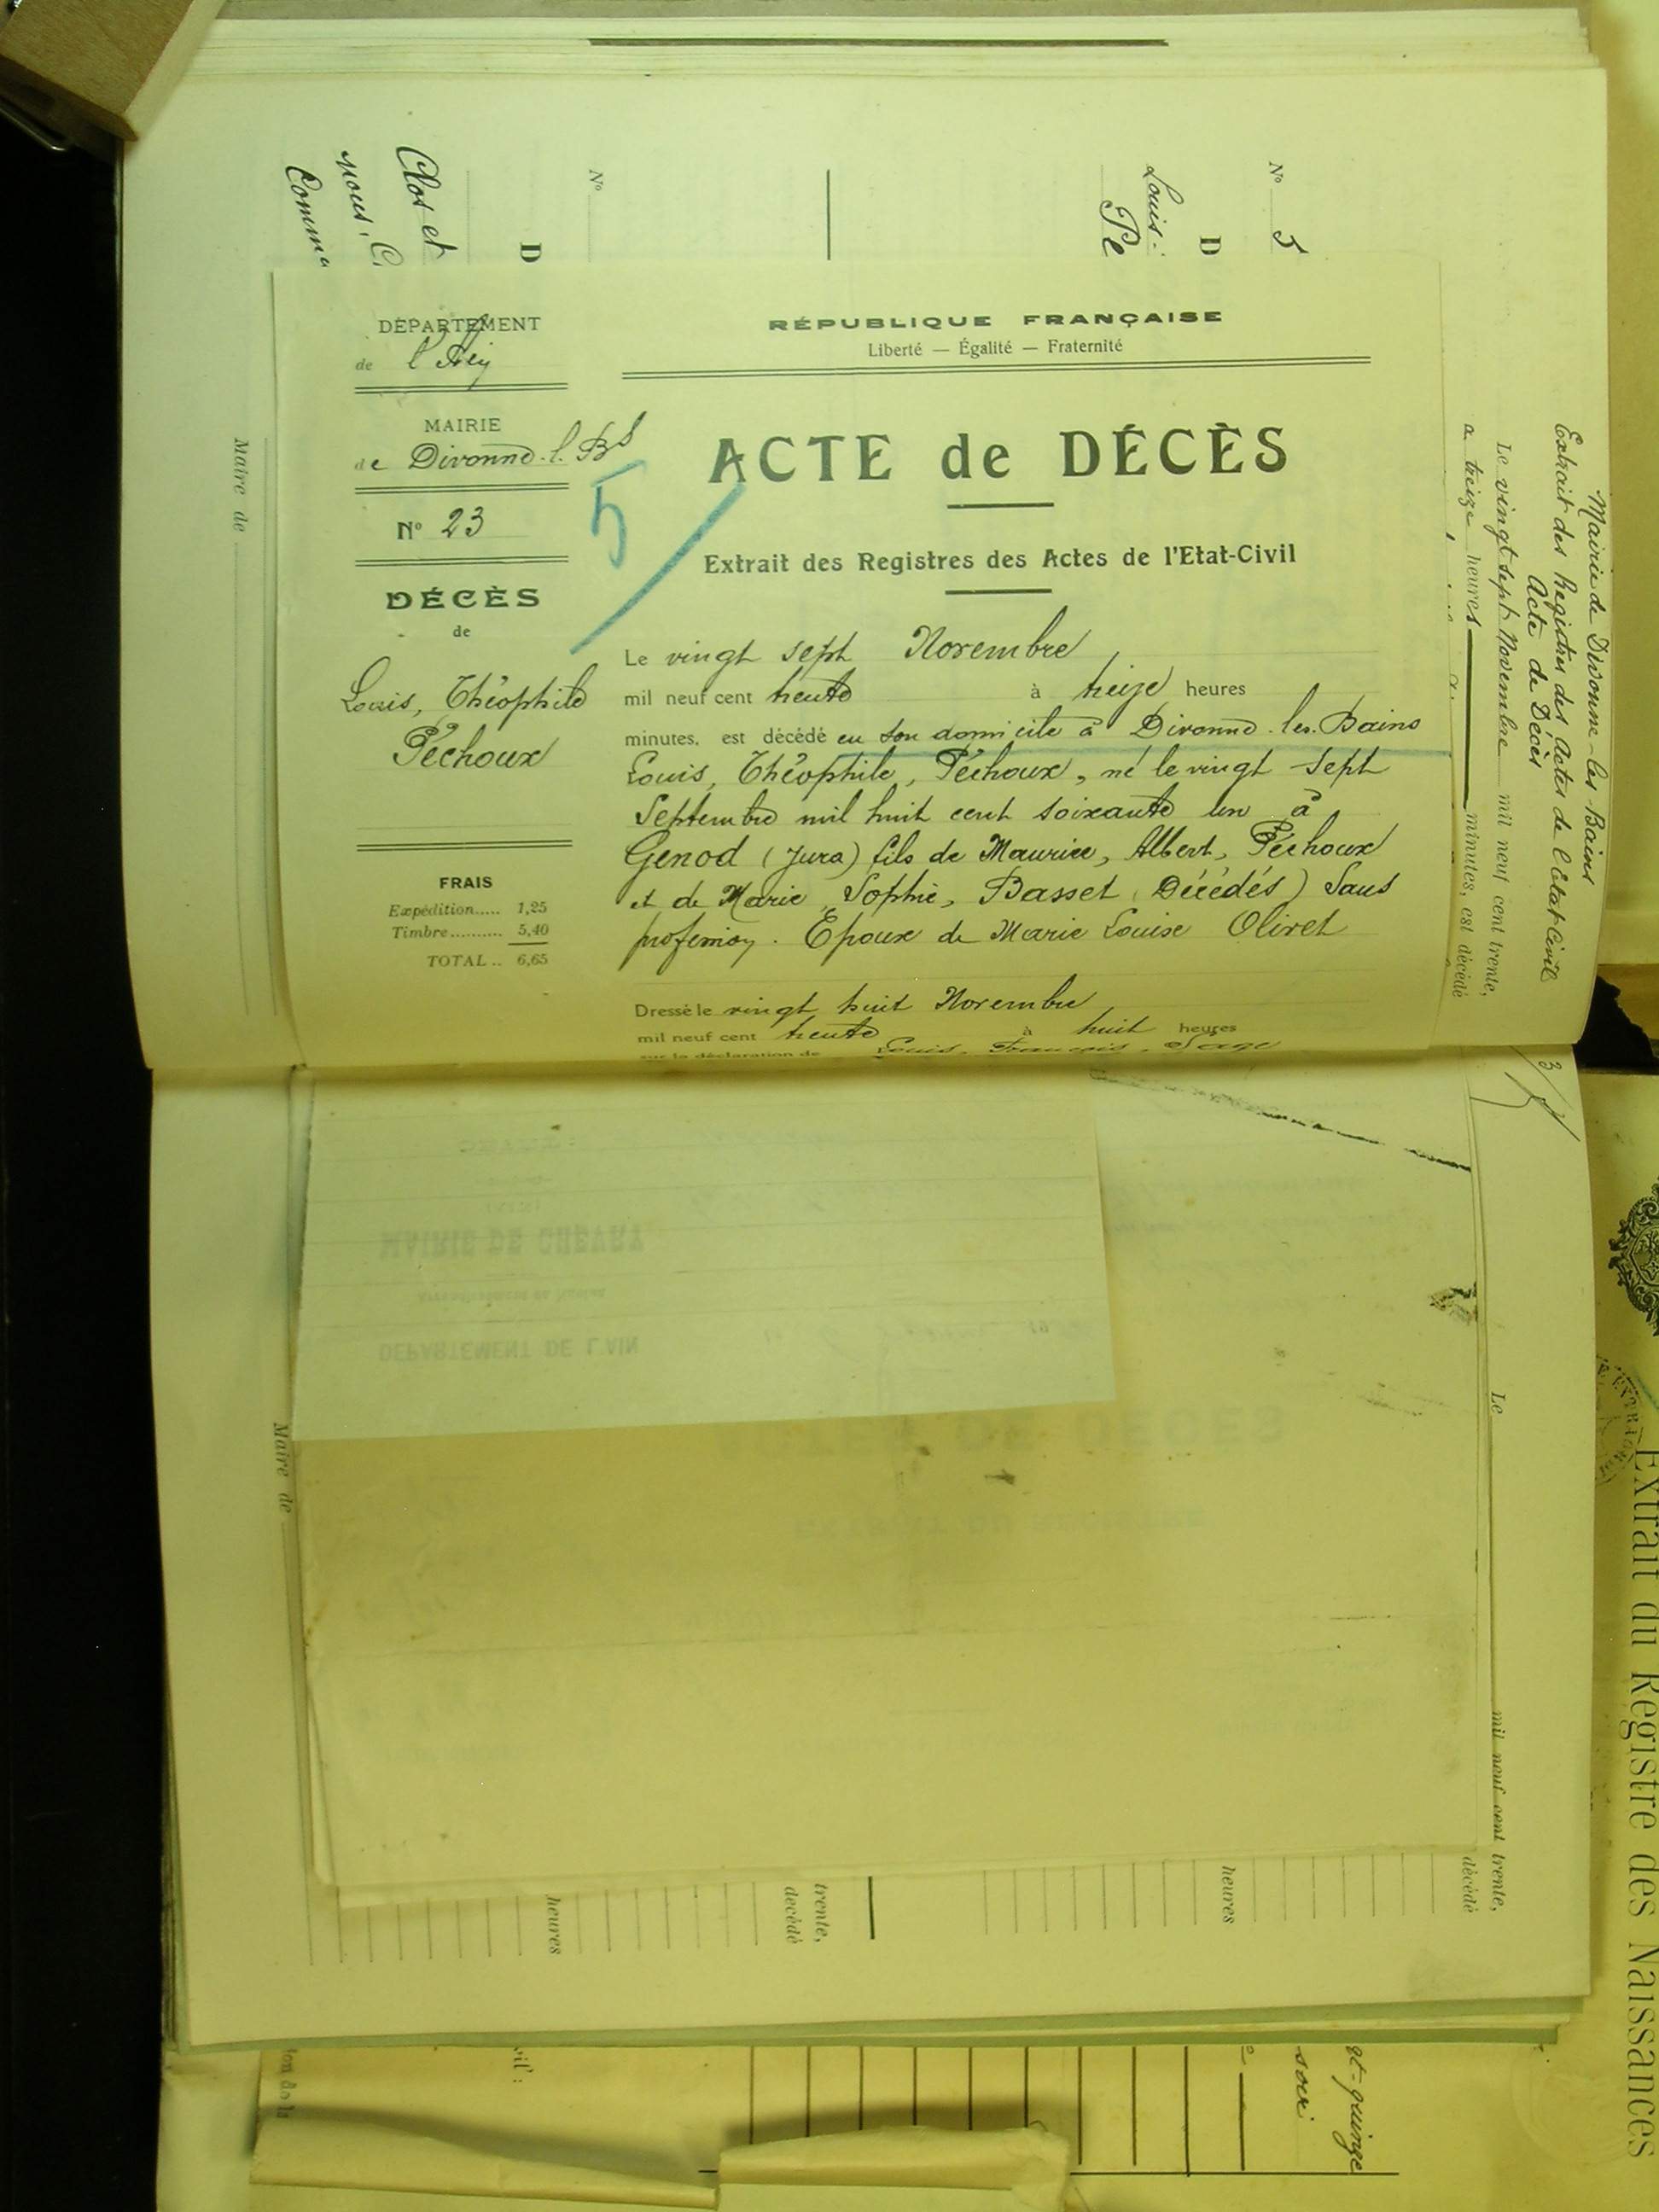 DÉPARTEMENT
de l'Ain
MAIRIE
de Divonne-l. Bs
N° 23
DÉCÈS
de
Louis, Théophile
Péchoux
FRAIS
Expédition..... 1,25
Timbre.......... 5,40
TOTAL .. 6,65
RÉPUBLIQUE FRANÇAISE
Liberté — Égalité — Fraternité
ACTE de DÉCÈS
5
Extrait des Registres des Actes de l'Etat-Civil
Le vingt sept Novembre
mil neuf cent trente à treize heures
minutes, est décédé en son domicile à Divonne-les-Bains
Louis, Théophile, Péchoux, né le vingt-sept
Septembre mil huit cent soixante un à
Genod (Jura) fils de Maurice, Albert, Péchoux
et de Marie, Sophie, Basset (Décédés) Sans
profession. Epoux de Marie Louise Olivet
Dressé le vingt huit Novembre
mil neuf cent trente à huit heures
sur la déclaration de Louis, François, Sage
Mairie de Divonne-les-Bains
Extrait des Registres des Actes de l'Etat Civil
Acte de Décès
Le vingt sept Novembre mil neuf cent trente,
a treize heures minutes, est décédé
N° 5
D
Louis
Pe
N°
D
Clos et
nous, C
Comm
Maire de
MAIRIE DE CHEVRY
DÉPARTEMENT DE L'AIN
DE DÉCÈS
Le mil neuf cent trente,
décédé
heures
trente,
décédé
heures
Maire de
Extrait du Registre des Naissances
gt-quinze
soir